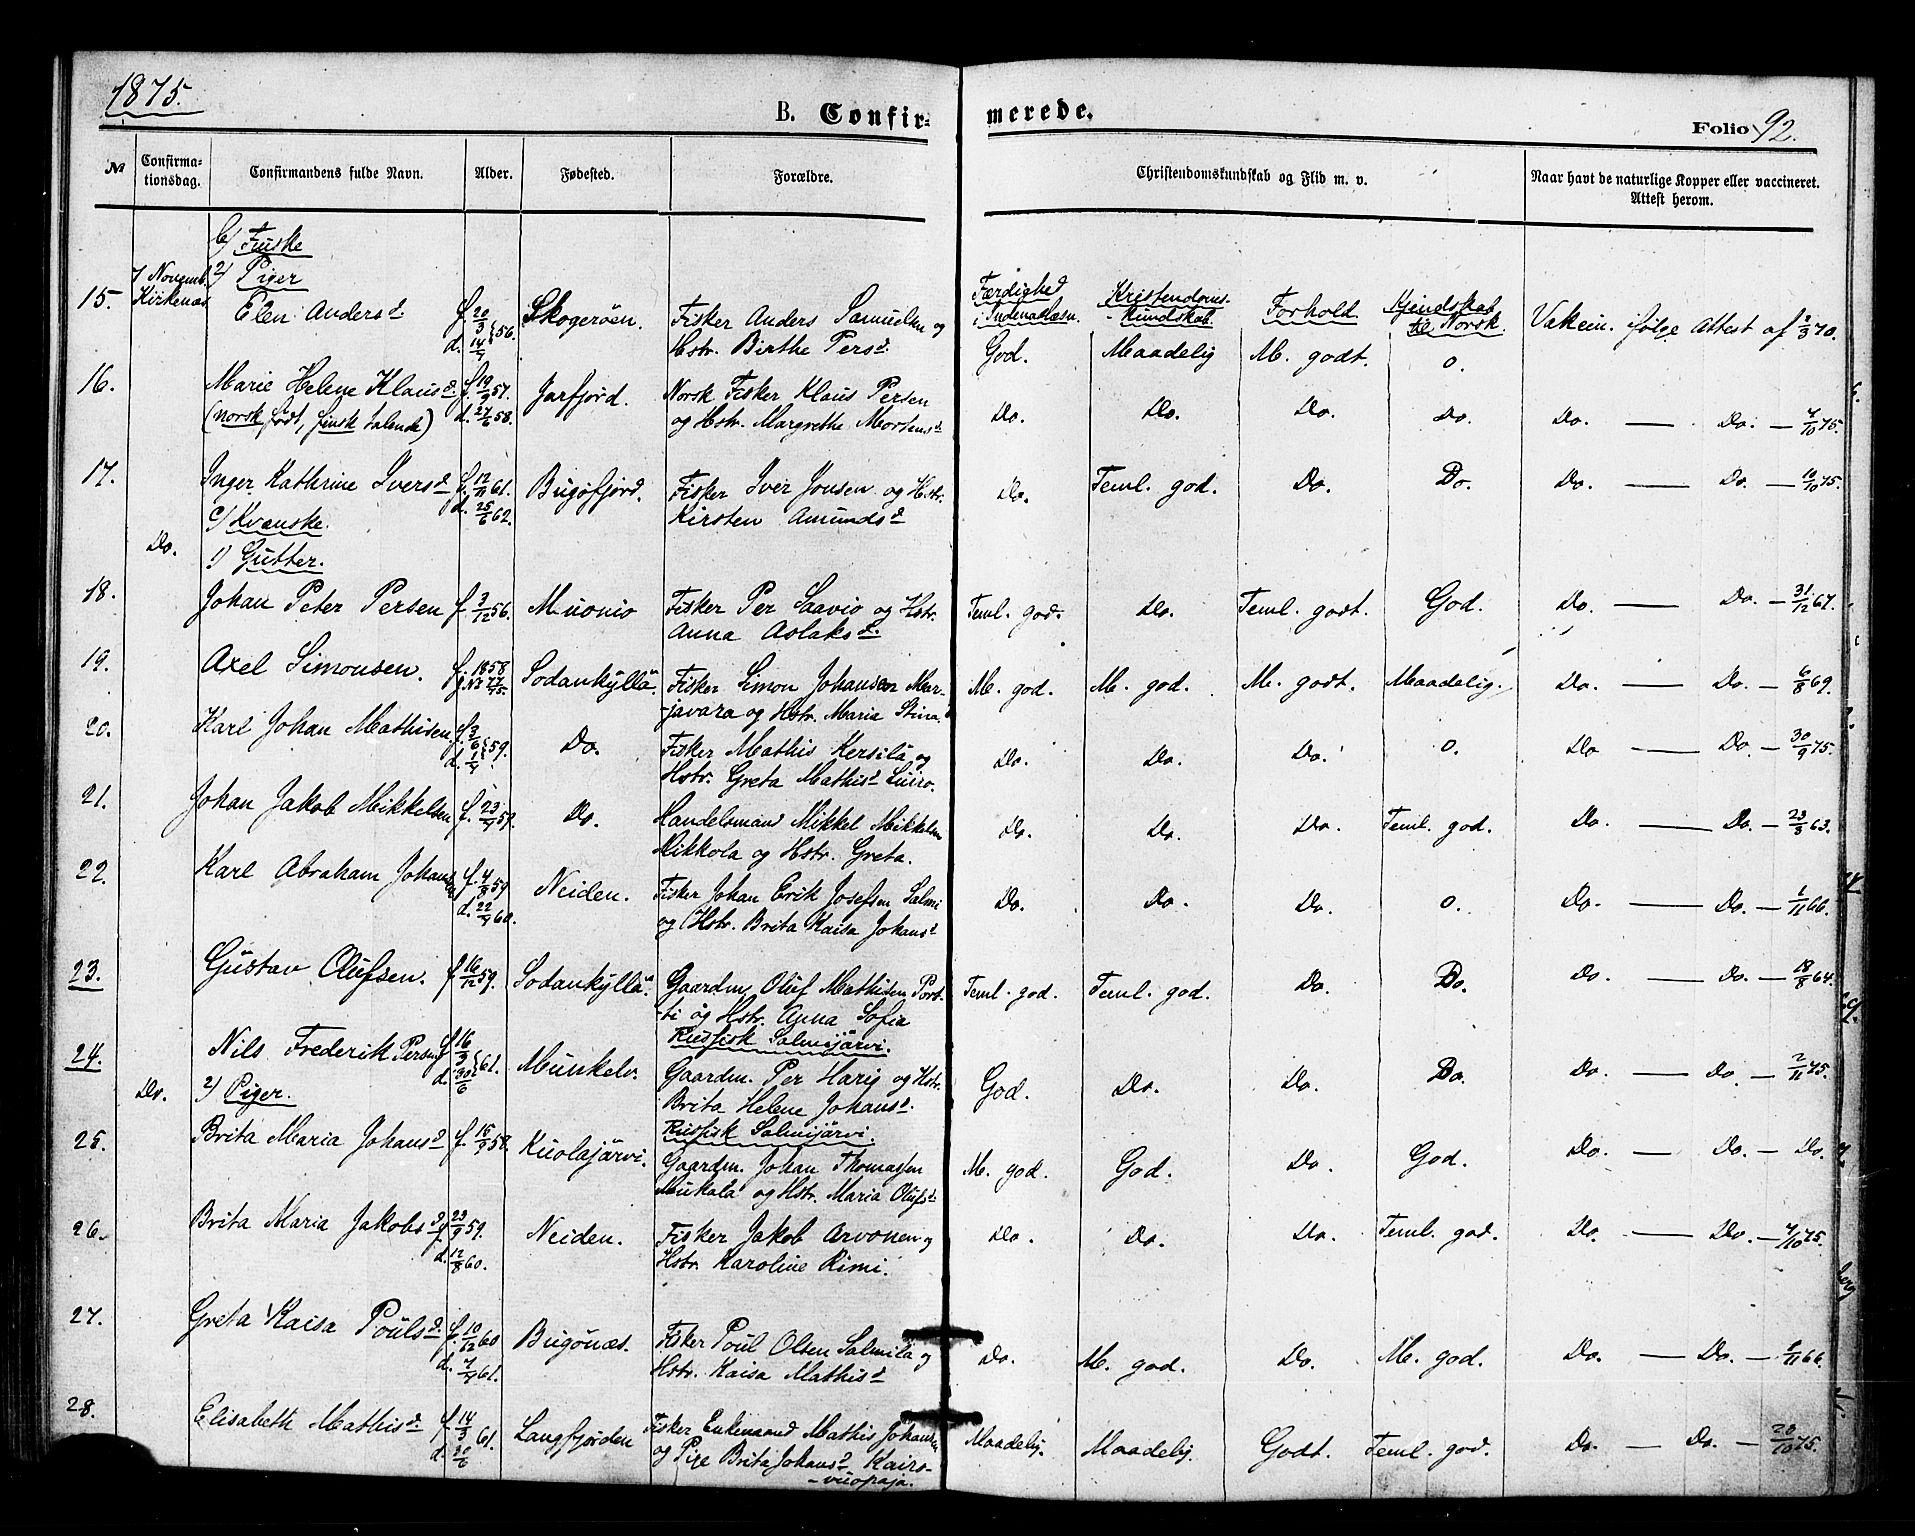 1875.
B. Confir-
merede.
Folio 92.
№
Confirma-
tionsdag.
Confirmandens fulde Navn.
Alder.
Fødested.
Forældre.
Christendomskundskab og Flid m. v.
Naar havt de naturlige Kopper eller vaccineret.
Attest herom.
b) Finske
2) Piger
7 Novemb.
Kirkenæs
Færdighed
i Indenadlæsn.
Kristendoms-
kundskab.
Forhold.
Kjendskab
til Norsk.
15.
Elen Andersd.
f. 20/3 56.
d. 14/4
Skogerøen.
Fisker Anders Samuelsen og
Hstr. Birthe Persd.
God. Maadelig M. godt. o.
Vakcin. ifølge Attest af 70.
16.
Marie Helene Klausd.
(norsk født, finsk talende)
f. 19/9 57.
d. 27/6 58.
Jarfjord.
Norsk Fisker Klaus Persen
og Hstr. Margrethe Mortensd
Do. Do. Do. Do. Do. — Do. — 4/10 75.
17.
Inger Kathrine Iversd
f. 12/11 61.
d. 25/6 62.
Bugøfjord.
Fisker Iver Jonsen og Hstr.
Kirsten Amundsd
Do. Teml. god. Do. Do. Do. — Do. — 10/10 75.
c) Kvænske.
Do.
1) Gutter.
18.
Johan Peter Persen
f. 3/12 56.
Muonio
Fisker Per Saavio og Hstr.
Anna Aslaksd.
Teml. god. Do. Teml. godt. God. Do. — Do. — 31/12 67.
19.
Axel Simonsen.
f. 1858
Sodankyllä.
Fisker Simon Johansen Mar-
javara og Hstr. Maria Stina.
M. god. M. god. M. godt. Maadelig. Do. — Do. — 6/8 69.
20.
Karl Johan Mathisen
f. 3/6 59.
d. 1/4
Do.
Fisker Mathis Kersilä og
Hstr. Greta Mathisd Luiro.
Do. Do. Do. o. Do — Do. — 30/9 75.
21.
Johan Jakob Mikkelsen
f. 23/4 59.
Do.
Handelsmand Mikkel Mikkelsen
Nikkola og Hstr. Greta.
Do. Do. Do. Teml. god. Do. — Do. — 23/3 63.
22.
Karl Abraham Johansen
f. 4/9 59
d. 22/4 60.
Neiden.
Fisker Johan Erik Josefsen Salmi
og Hstr. Brita Kaisa Johansd
Do. Do. Do. o. Do. — Do. — 1/11 66.
23.
Gustav Olufsen.
f. 16/12 59.
Sodankyllä.
Gaardm. Oluf Mathisen Port-
ti og Hstr. Anna Sofia
Russisk Salmijärvi.
Teml. god. Teml. god. Do. Do. Do. — Do. — 18/8 64.
24.
Nils Frederik Persen
f. 16/3 61.
d. 30/6
Munkelv.
Gaardm. Per Harig og Hstr.
Brita Helene Johansd.
Russisk Salmijärvi.
God. Do. Do. Do. Do. — Do. — 2/11 75.
Do.
2) Piger.
25.
Brita Maria Johansd
f. 15/9 58.
Kuolajärvi.
Gaardm. Johan Thomassen
Mukala og Hstr. Maria Olufsd
M. god. God. Do. God. Do. — Do. — Do.
26.
Brita Maria Jakobsd
f. 23/9 59.
d. 12/8 60.
Neiden.
Fisker Jakob Arvonen og
Hstr. Karoline Rimi.
Do. Do. Do. Teml. god. Do. — Do. — 4/10 75.
27.
Greta Kaisa Poulsd.
f. 10/12 60
d. 7/4 61.
Bugønæs.
Fisker Poul Olsen Salmila og
Hstr. Kaisa Mathisd
Do. M. god. Do. M. god. Do. — Do. — 1/11 66.
28.
Elisabeth Mathisd.
f. 14/3 61.
d. 20/6
Langfjorden
Fisker Enkemand Mathis Johansen
og Pige Brita Johansd Kairo-
-vuopaja.
Maadelig. Maadelig. Godt. Teml. god. Do. — Do. — 20/10 75.